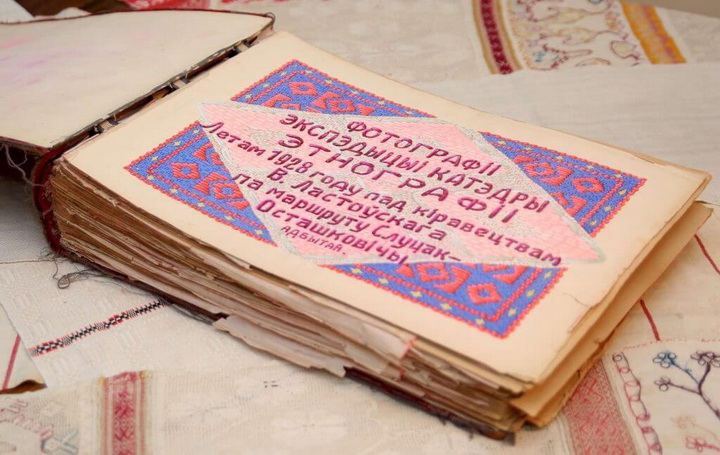 ФОТОГРАФІІ
ЭКСПЭДЫЦЫІ КАТЭДРЫ
ЭТНОГРАФІІ
Летам 1928 году пад кіравецтвам
В. Ластоўскага
па маршруту Слуцак–
Осташковічы
адбытай.